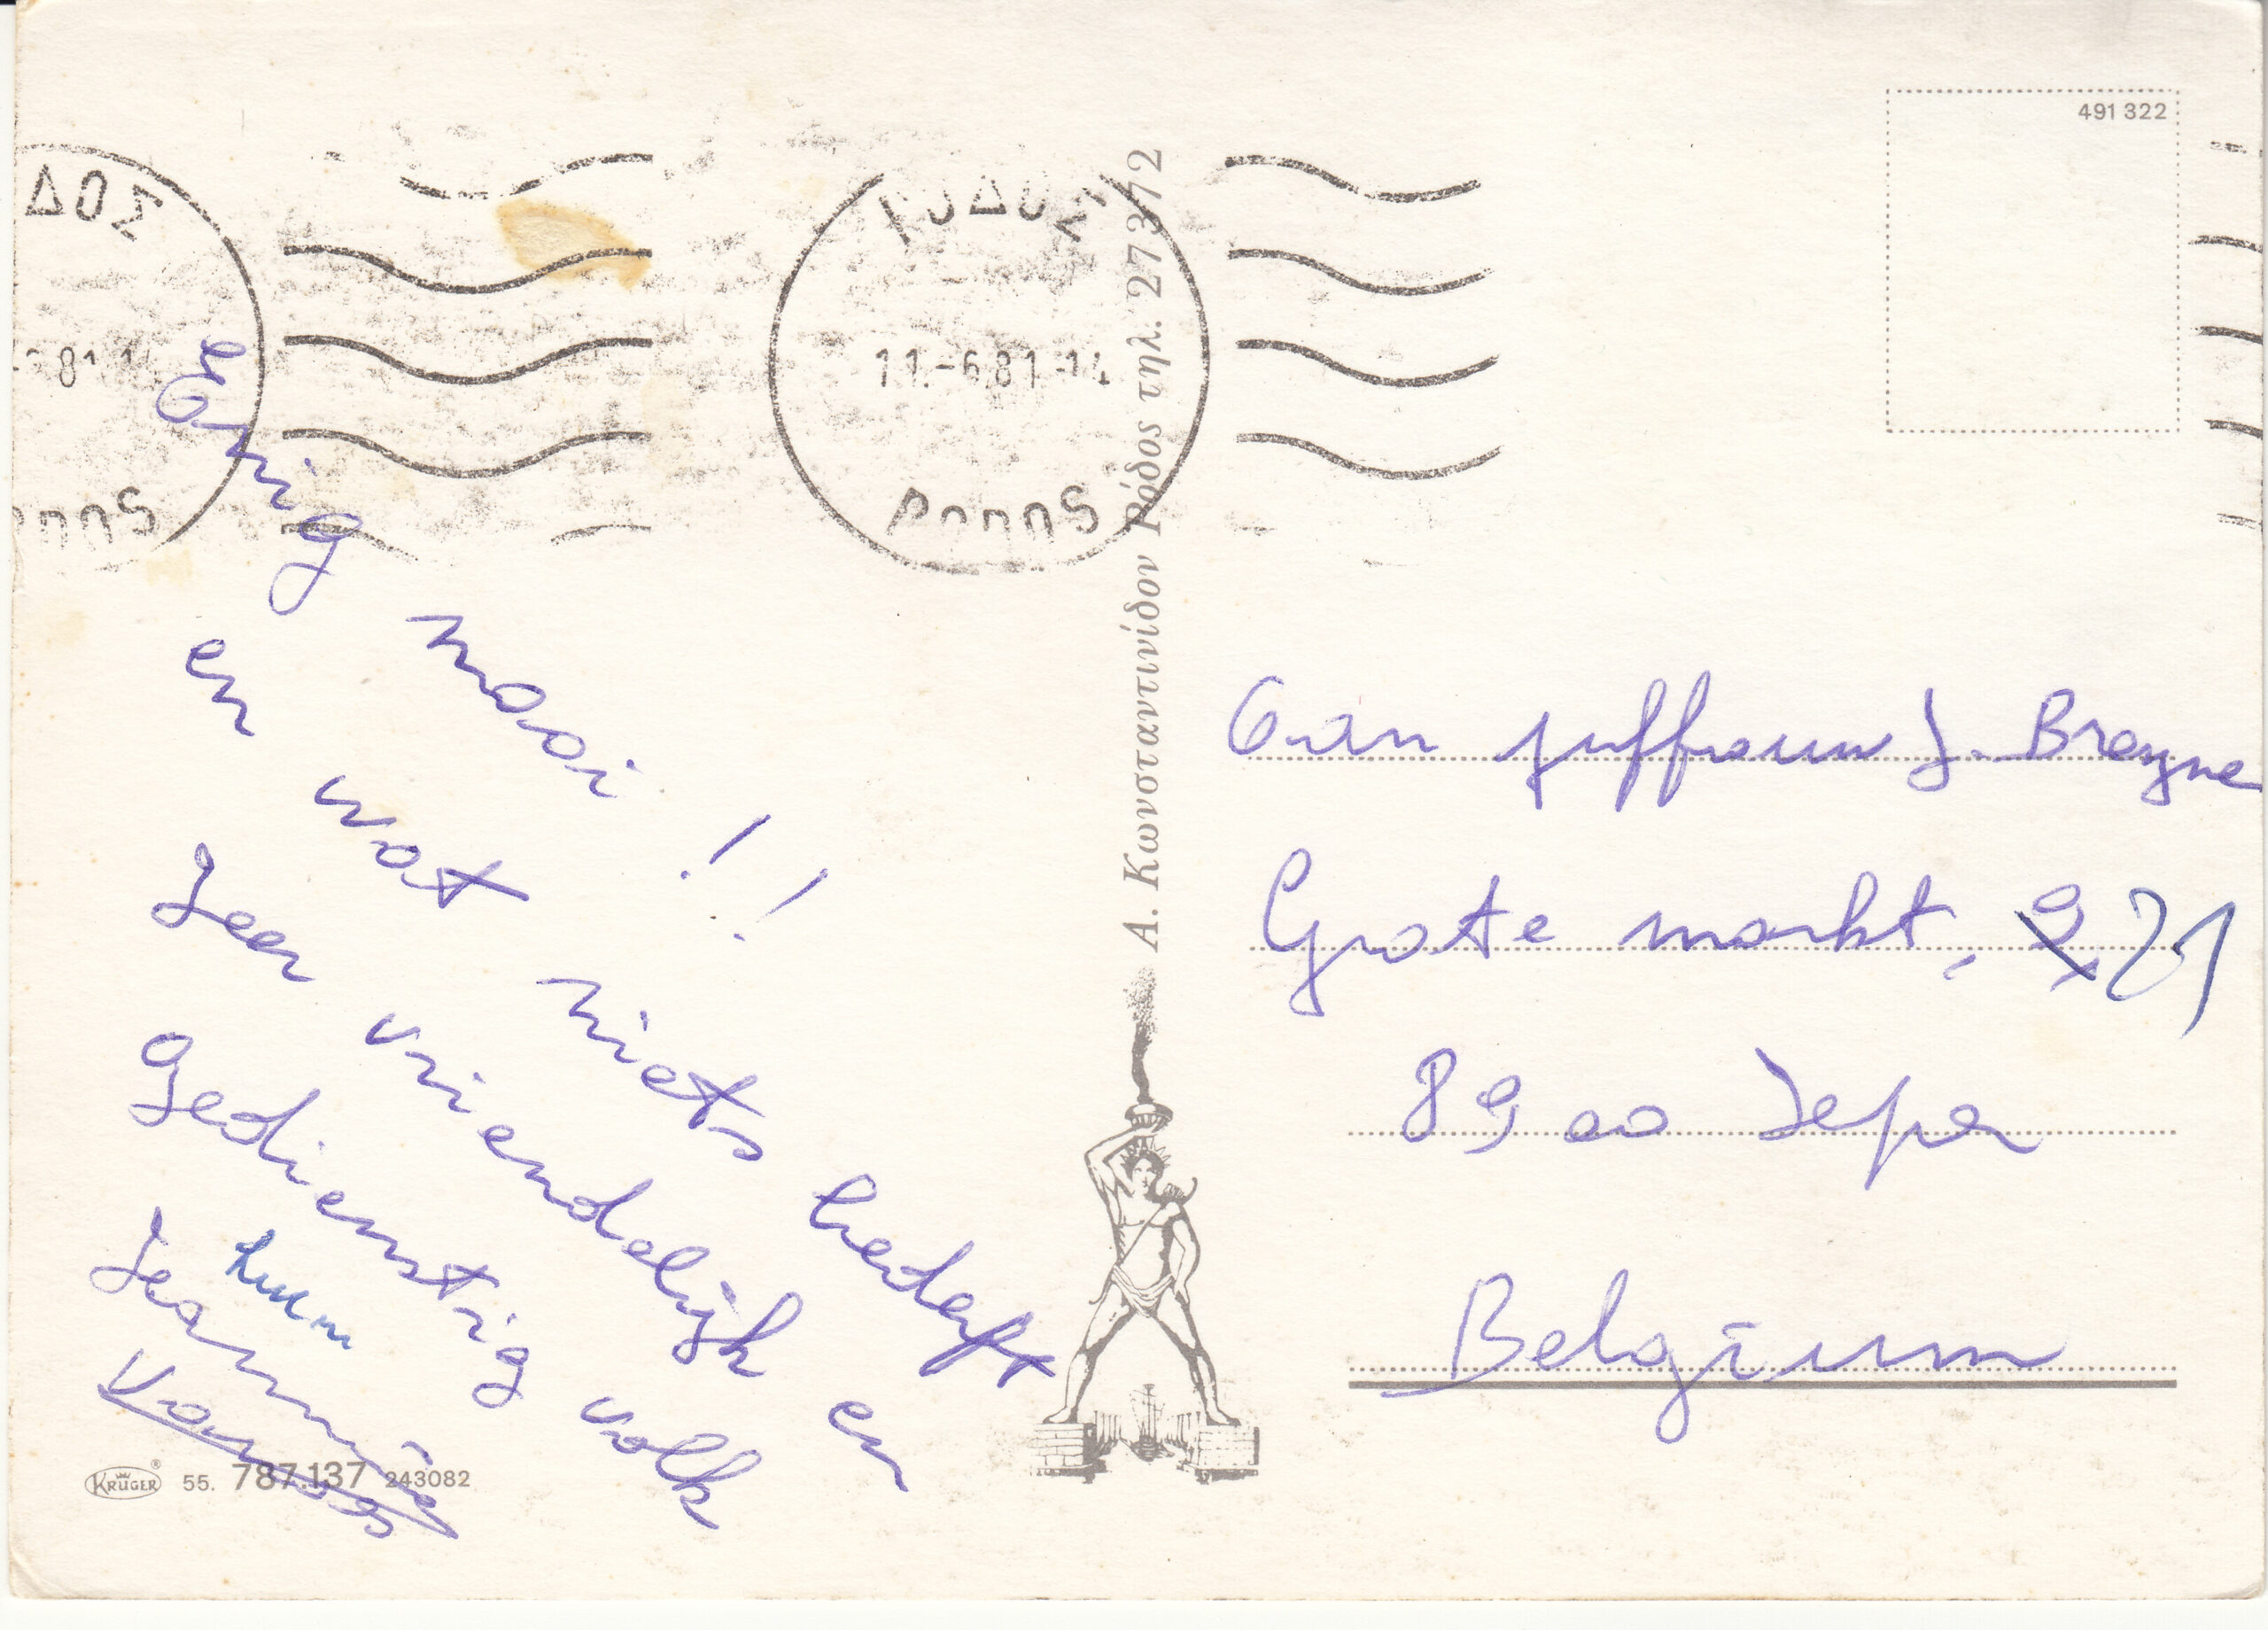 491 322
ΔΟΣ
ΡΟΔΟΣ
81
11.-6.81-14
RODOS
Α. Κωνσταντινίδου Ρόδος τηλ. 27372
Enig mooi !!
en wat niets bederft
Zeer vriendelijk en
gedienstig volk
Jeannine
Aan juffrouw J. Breyne
Grote markt, 9 21
8900 Ieper
Belgium
KRÜGER ® 55. 787.137 243082